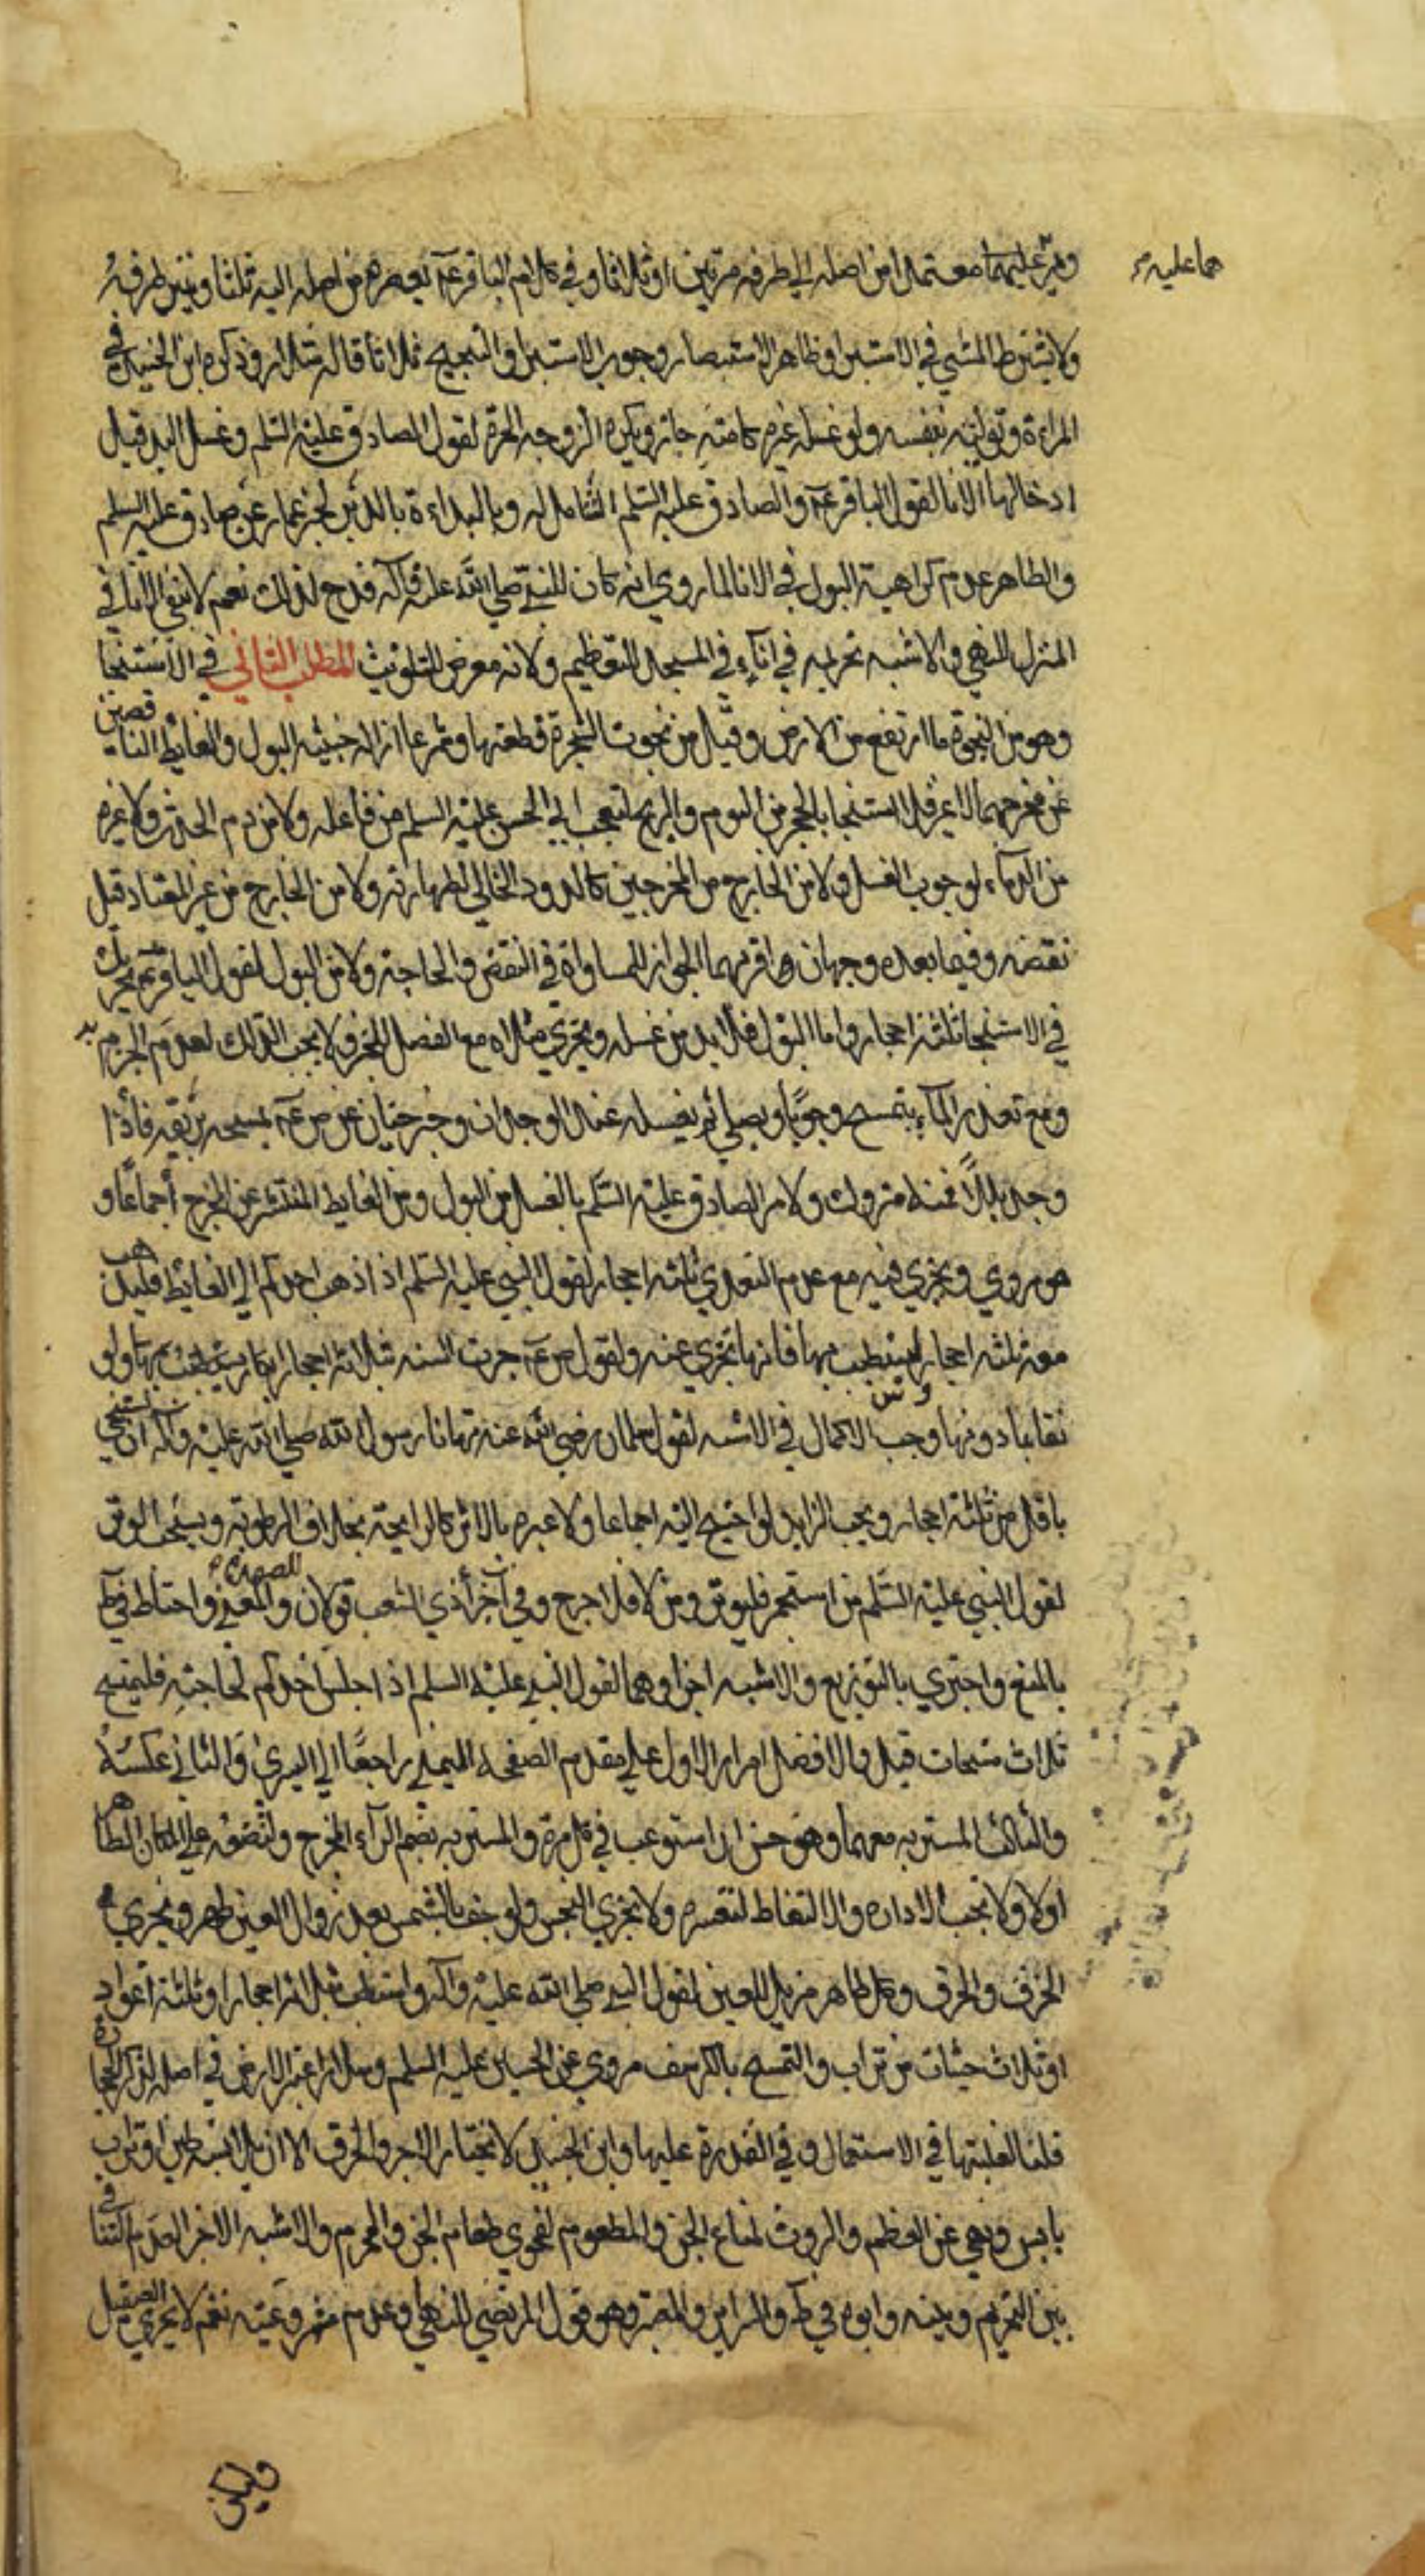 هما عليه م
ويمر عليهما معتمدا من اصله الى طرفه مرتين او ثلاثا وفي كلام الباقر عم يعصره من اصله اليه ثلثا وينتر طرفه
ولا يشترط المشي في الاستبراء وظاهر الاستبصار وجوب الاستبرا والتنحنح ثلاثا قاله سلار وذكره ابن الجنيد في
المراءة وتوليه بنفسه ولو غسله غيره كامته جاز ويكره الزوجه الحرة لقول الصادق عليه السلم وغسل اليد قبل
ادخالها الانا لقول الباقر عم والصادق عليه السلم الشامل له وبالبداءة بالدبر لخبر عمار عن صادق عليه السلم
والظاهر عدم كراهية البول في الانا لما روي انه كان للنبي صلى الله عليه واله قدح لذلك نعم لا يبقى الانا في
المنزل للنهي والاشبه تحريمه في اناء في المسجد للتعظيم ولانه معرض للتلويث المطلب الثاني في الاستنجا
وهو من النجوة ما ارتفع من الارض وقيل من نجوت الشجرة قطعتها وشرعا ازاله خبثيه البول والغايط الناقصين
عن مخرجهما لا غير فلا استنجا بالحجر من النوم والريح لتعجب ابي الحسن عليه السلم من فاعله ولا من دم الحدث ولا غيره
من الدماء لوجوب الغسل ولا من الخارج من المخرجين كالدود الخالي لطهارته ولا من الخارج من غير المعتاد قبل
نقضه وفيما بعده وجهان اقربهما الجواز للمساواة في النقض والحاجة ولا من البول لقول الباقر عم يجزيك
في الاستنجا ثلثة احجار واما البول فلا بد من غسله ويجزي مثلاه مع الفصل للخبر ولا يجب الدلك لعدم الجرم به
ومع تعذر الماء يتمسح وجوبا ويصلي ثم يغسله عند الوجدان وخبر حنان عن ص عم يمسحه بريقه فاذا
وجد بللا فمنه متروك ولامر الصادق عليه السلم بالغسل من البول ومن الغايط المنتشر عن المخرج اجماعا و
هو مروي ويجزي فيه مع عدم التعدي ثلثه احجار لقول النبي عليه السلم اذا ذهب احدكم الى الغائط فليذهب
معه ثلثه احجار ليستطيب بها فانها تجزي عنه ولقول ص عم جرت السنه بثلاثه احجار ابكار ويستطيب بها ولو
نقا بما دونها وجب الاكمال في الاشبه لقول سلمان رضي الله عنه نهانا رسول الله صلى الله عليه واله ان نستنجي
باقل من ثلثة احجار ويجب الزايد لو احتيج اليه اجماعا ولا عبره بالاثر كالرايحة بخلاف الرطوبة ويستحب الوتر
لقول النبي عليه السلم من استجمر فليوتر ومن لا فلا حرج وفي اجزأ ذي الشعب قولان والمفيد واحتاط في ط
بالمنع واجتزي بالتوزيع والاشبه اجزاوهما لقول النبي عليه السلم اذا جلس احدكم لحاجته فليمسح
ثلاث مسحات قيل والافضل امرار الاول على مقدم الصفحه اليمنى راجعا الى اليسرى والثاني عكسه
والثالث المسربه معهما وهو حسن اذا استوعب في كل مرة والمسربه بضم الراء المخرج ولتضعه على المكان الطاهر
اولا ولا تجب الاداره والالتقاط لتعسره ولا يجزي النجس ولو جف بالشمس بعد زوال العين طهر ويجزي
الخزف والخرق وكل طاهر مزيل للعين لقول النبي صلى الله عليه واله واستطب بثلاثه احجار او ثلثة اعواد
او ثلاث حثيات من تراب والتمسح بالكرسف مروي عن الحسين عليه السلم وسلار اعتبر الارض في اصله لذكر الحجارة
قلنا لغلبتها في الاستعمال وفي القدرة عليها وابن الجنيد لا يختار الاجر والخزف الا ان يلابسه طين او تراب
يابس ونهي عن العظم والروث لمتاع الجن والمطعوم لفحوي طعام الجن والمحرم والاشبه الاجزا لعدم التنافي
بين التحريم وبينه وابوه في ط والسراير والمعتبر وهو قول المرتضي للنهي وعدم مشروعيته نعم لا يجزي الصقيل